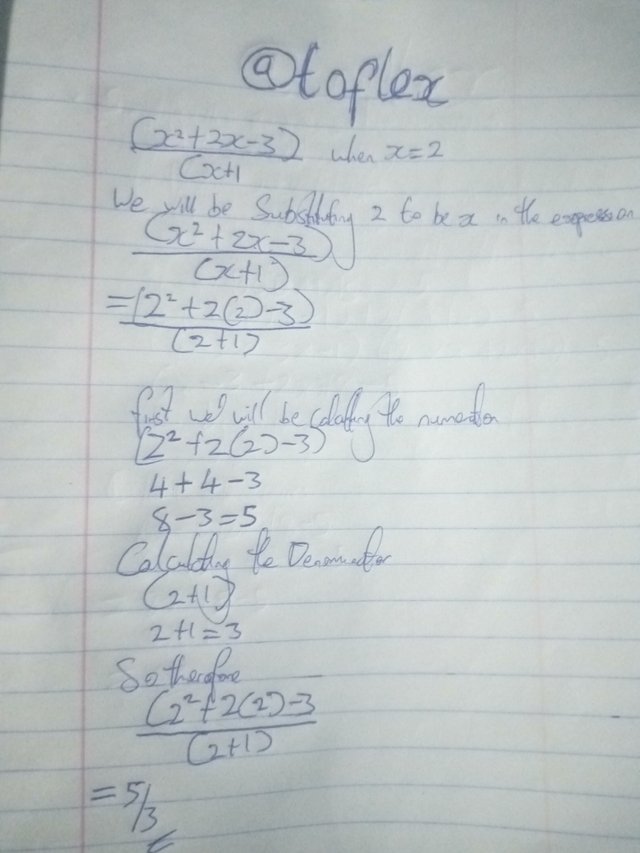 @toflex
(x²+2x-3)
(x+1
when x=2
We will be Substituting 2 to be x in the expression
(x²+2x-3)
(x+1)
=(2²+2(2)-3)
(2+1)
first we will be the
(2²+2(2)-3)
4+4-3
8-3=5
Calculating the
(2+1)
2+1=3
So therefore
(2²+2(2)-3
(2+1)
=5/3